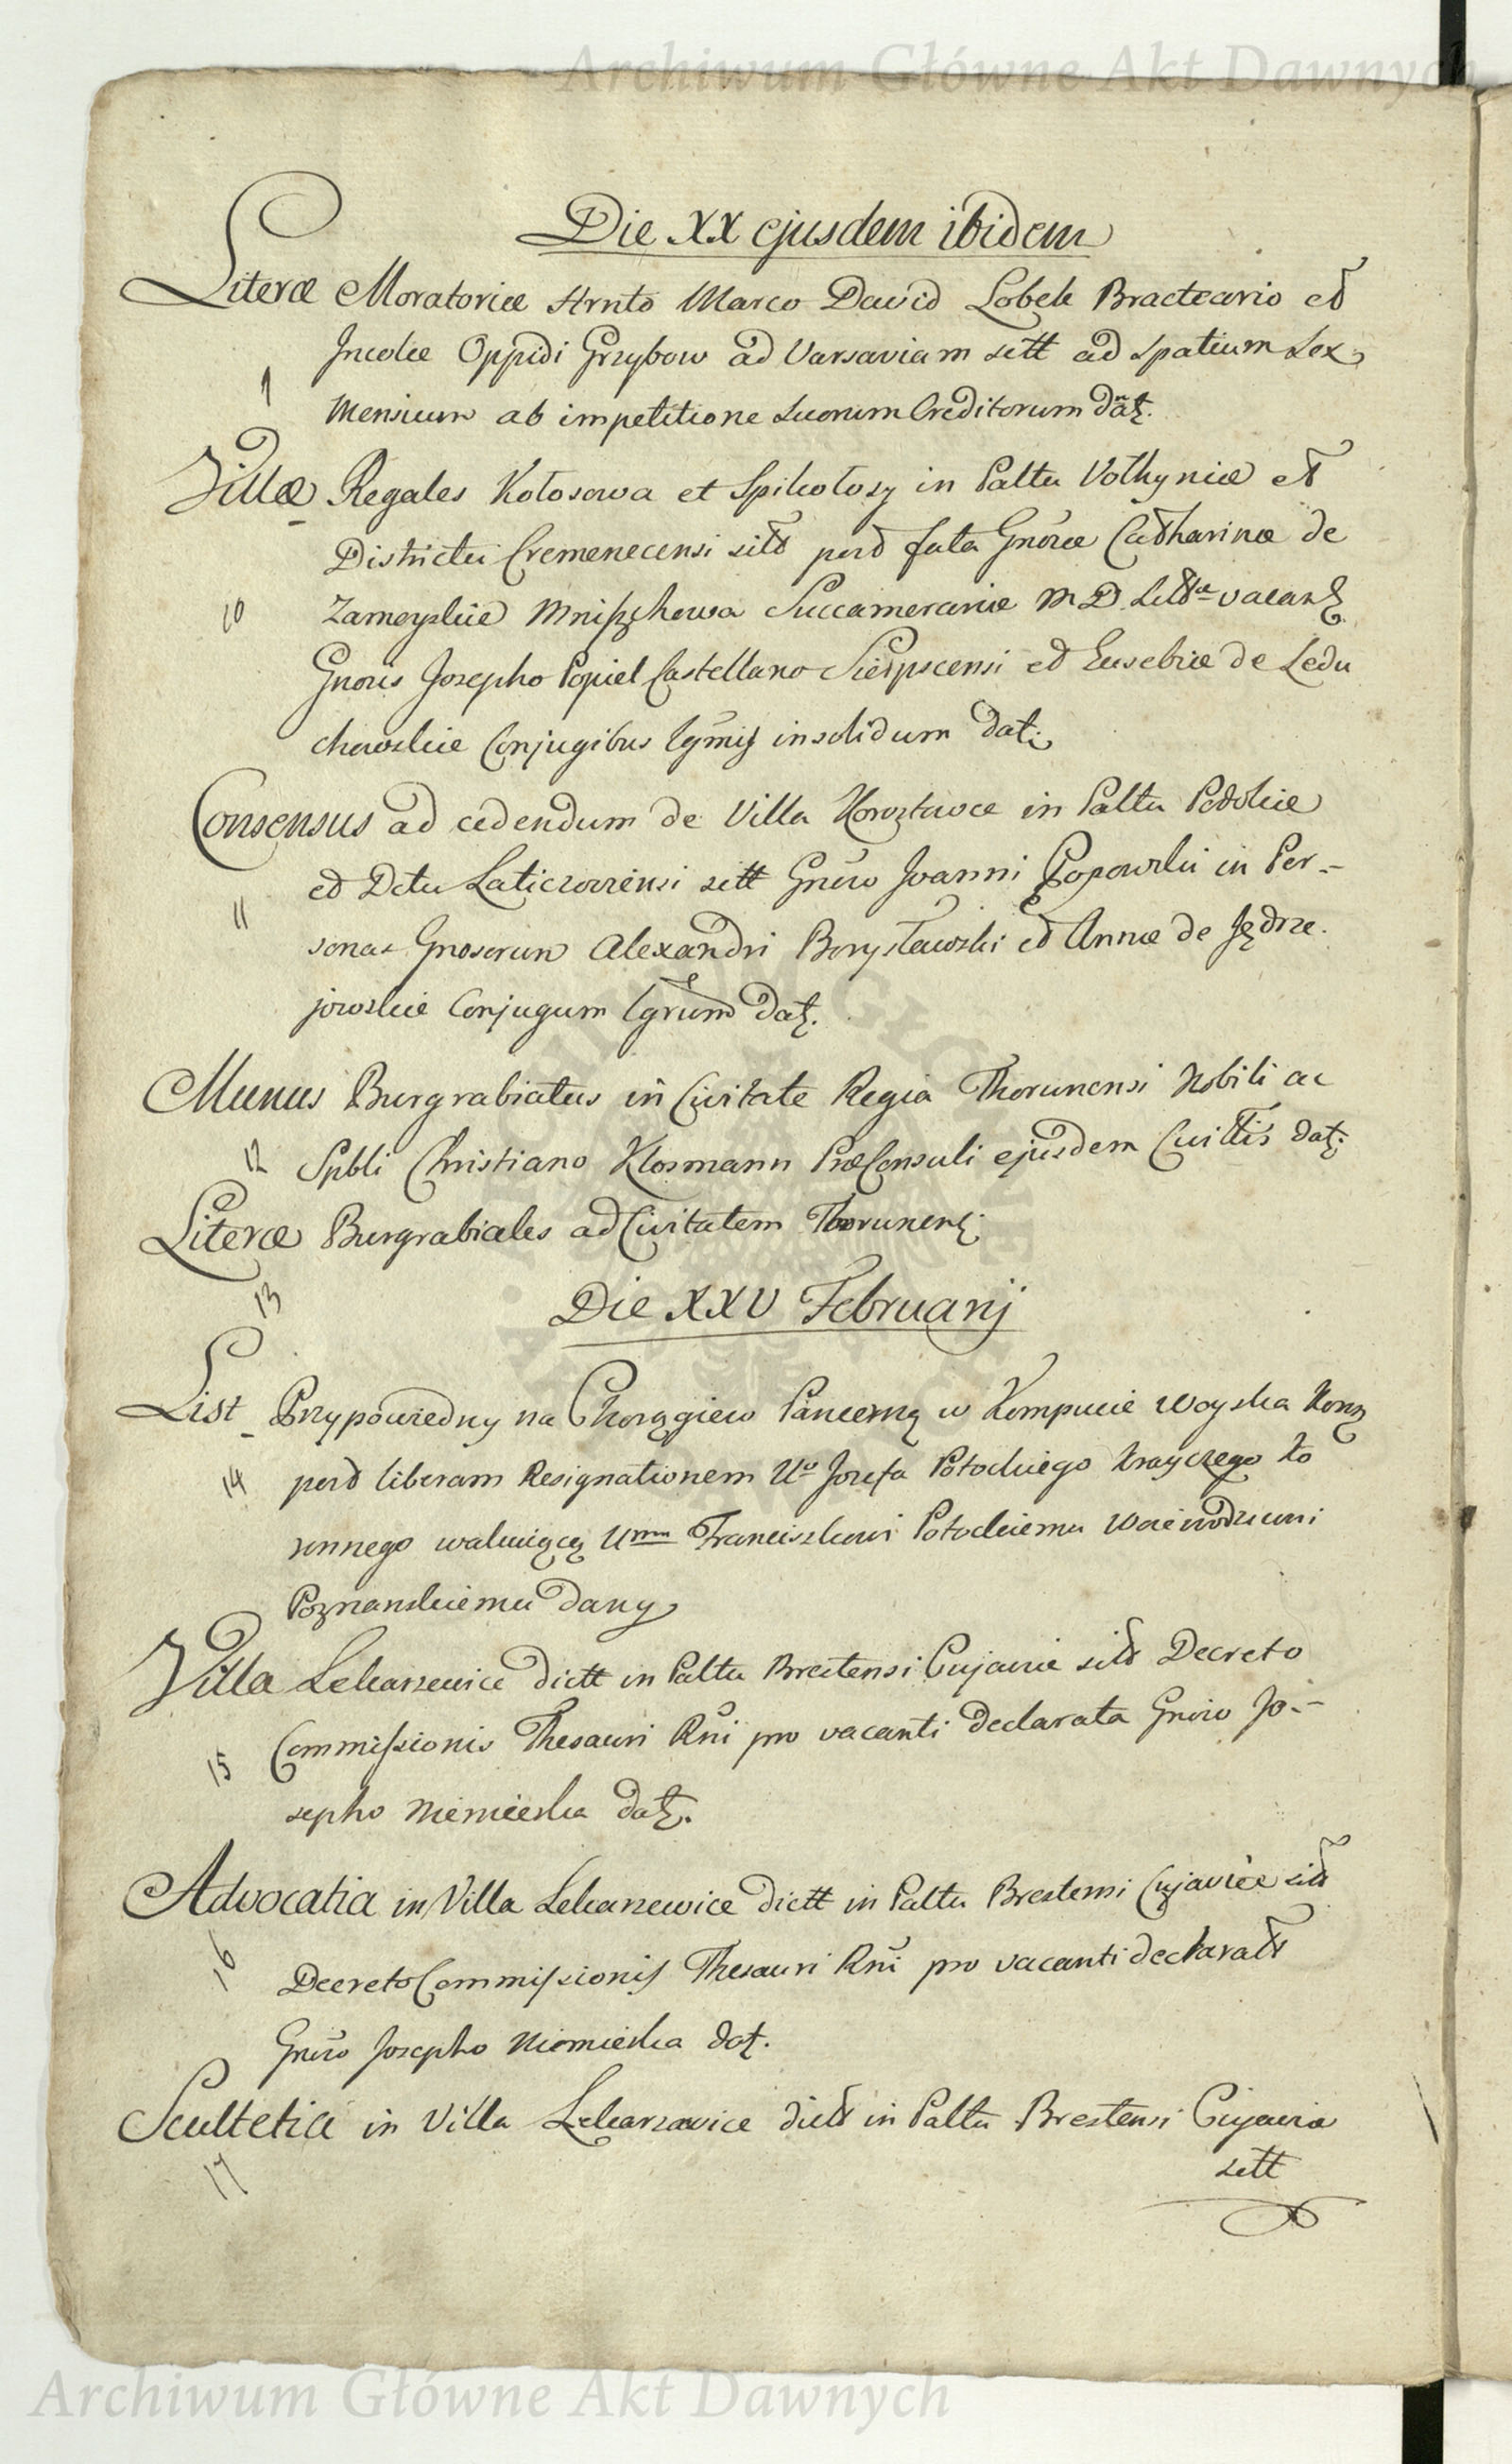 Archiwum Główne Akt Dawnych
Die XX ejusdem ibidem
Literæ Moratoriæ Strnto Marco David Lobek Bracteario et
Incolæ Oppidi Grzybow ad Varsaviam sitt ad spatium sex
9
Mensium ab impetitione suorum Creditorum dat.
Villæ Regales Kołosowa et Spikołosy in Pałtu Volhyniæ et
Districtu Cremenecensi sitt post fata Gnosæ Catharinæ de
10
Zamoyskie Mniszchowa Succameraria M D Litt vacan
Gnosis Josepho Popiel Castellano Sierpscensi et Eusebiæ de Ledu
chowskie Conjugibus lgmis insolidum dat.
Consensus ad cedendum de Villa Korostawce in Paltu Podoliæ
et Dctu Laticzoviensi sitt Gnoso Joanni Popowski in Per-
11
sonas Gnosorum Alexandri Borysławski et Annæ de Jędrze.
jowskie Conjugum lgrum dat.
Munus Burgrabiatus in Civitate Regia Thorunensi Nobili ac
12
Spbli Christiano Klosmann Præconsuli ejusdem Cvittis dat.
Literæ Burgrabiales ad Civitatem Thorunens
13
Die XXV Februarij
List Przypowiedny na Chorągiew Pancerną w Kompucie Woyska Koro
14
post liberam Resignationem Uo Jozefa Potockiego Krayczego Ko
ronnego wakuiącą Umu Franciszkowi Potockiemu Woiewodzicowi
Poznanskiemu dany
Villa Lekarzewice dictt in Paltu Brestensi Cujaviæ sitt Decreto
Commissionis Thesauri Rni pro vacanti declarata Gnoso Jo-
15
sepho Niemieska dat.
Advocatia in Villa Lekarzewice dictt in Paltu Brestensi Cujaviæ sitt
16
Decreto Commissionis Thesauri Rni pro vacanti declarat
Gnoso Josepho Niemieska dat.
Scultetia in Villa Lekarzewice dictt in Paltu Brestensi Cujavia
17
sitt
Archiwum Główne Akt Dawnych